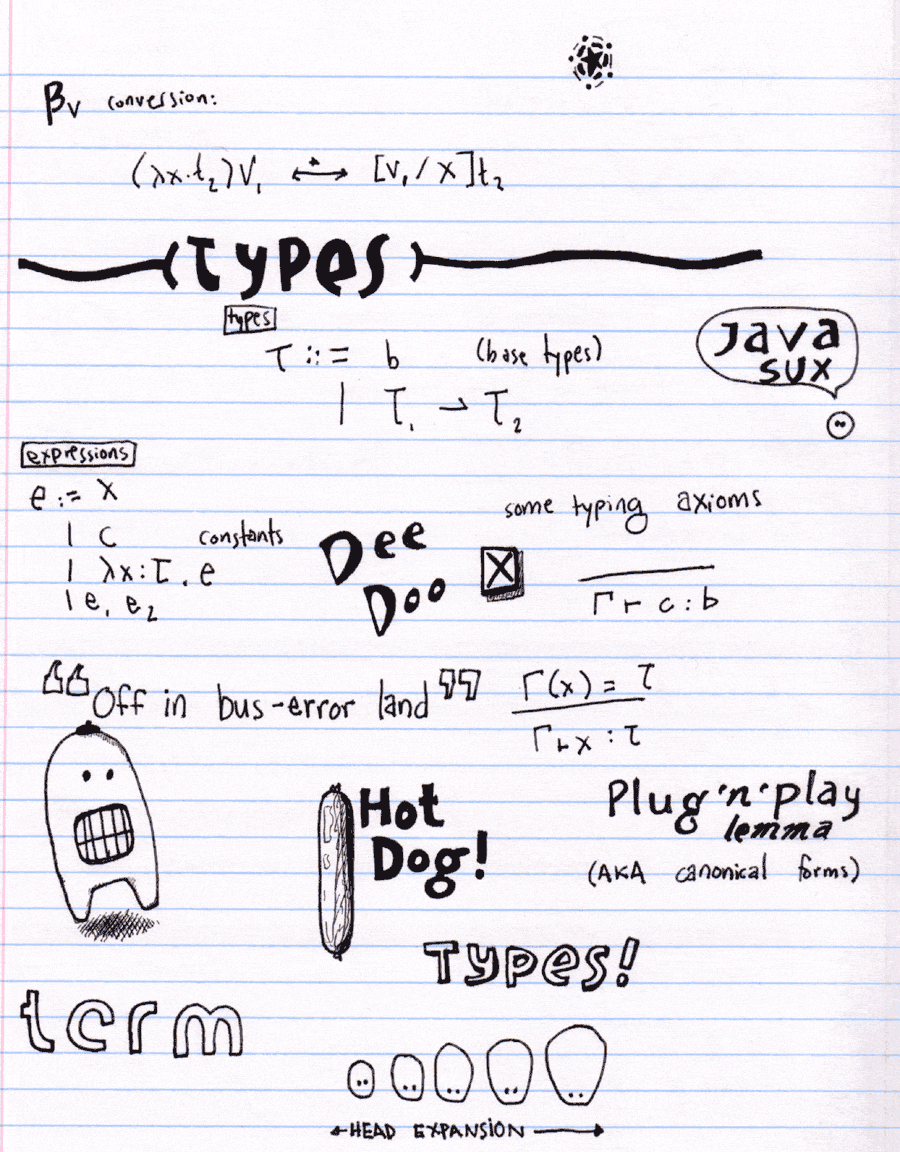 βv conversion:
(λx.t₂)V₁ ⟷* [V₁/X]t₂
(types)
types
τ ::= b (base types)
| τ₁ → τ₂
Java
sux
expressions
e := x
| c constants
| λx:τ.e
| e₁ e₂
Dee
Doo
some typing axioms
Γ ⊢ c : b
“Off in bus-error land”
Γ(x) = τ
Γ ⊢ x : τ
Hot
Dog!
Plug 'n' play
lemma
(AKA canonical forms)
Types!
term
←HEAD EXPANSION→